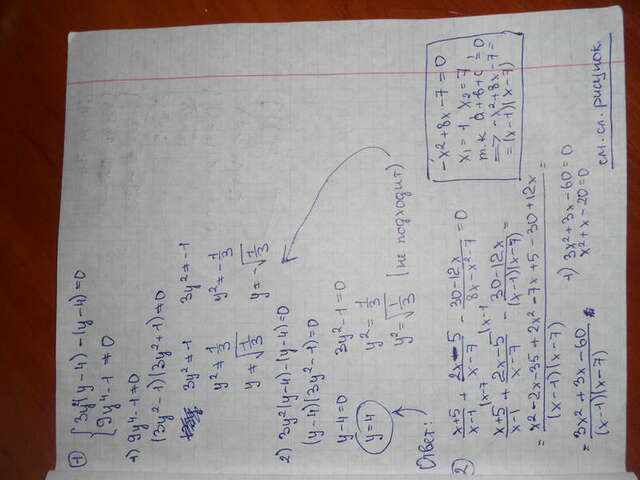 ① { 3y²(y-4)-(y-4)=0
{ 9y⁴-1≠0
1) 9y⁴-1≠0
(3y²-1)(3y²+1)≠0
3y²≠1 3y²≠-1
y²≠1/3 y²≠-1/3
y≠√1/3 y≠-√1/3
2) 3y²(y-4)-(y-4)=0
(y-4)(3y²-1)=0
y-4=0 3y²-1=0
y=4 y²=1/3
y²=√1/3 (не подходит)
Ответ:
② x+5/x-1 + 2x-5/x-7 - 30-12x/8x-x²-7 =0
(x-7 (x-1
x+5/x-1 + 2x-5/x-7 - 30-12x/(x-1)(x-7) =
= x²-2x-35+2x²-7x+5-30+12x/(x-1)(x-7) =
= 3x²+3x-60/(x-1)(x-7)
1) 3x²+3x-60=0
x²+x-20=0
см. сл. рисунок.
-x²+8x-7=0
x₁=1 x₂=7
т.к a+b+c=0
=> -x²+8x-7=
=(x-1)(x-7)